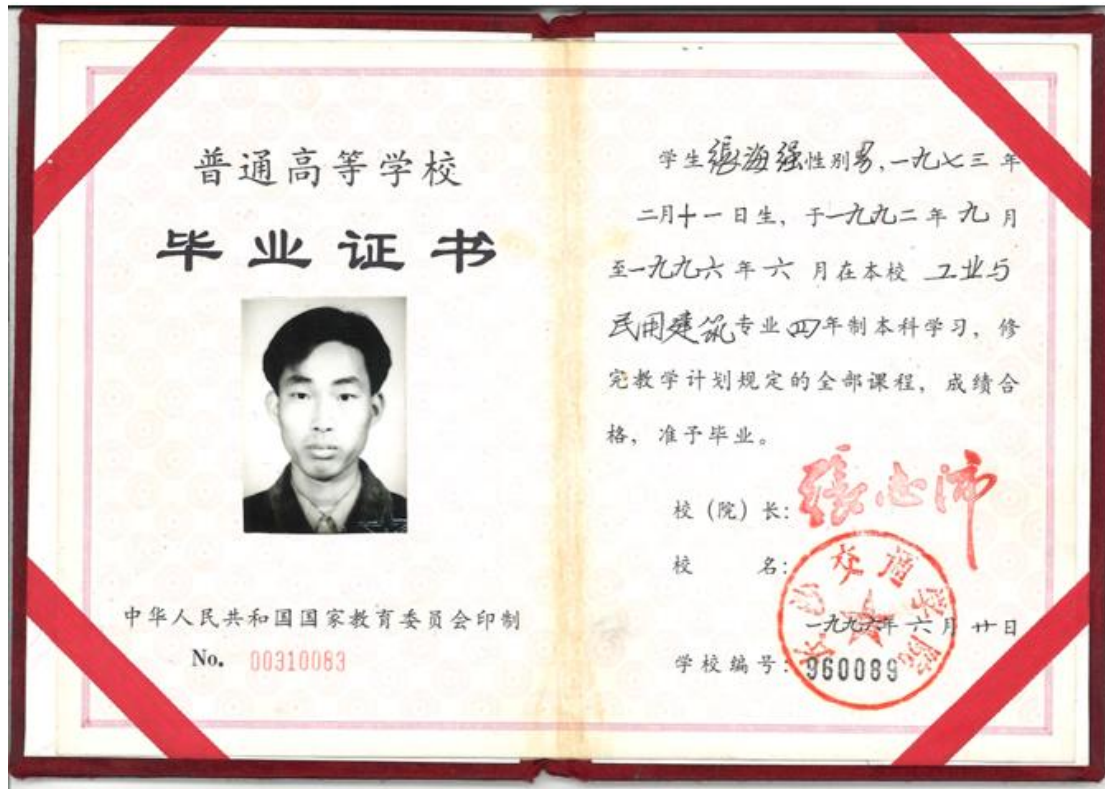 普通高等学校
毕业证书
中华人民共和国国家教育委员会印制
No. 00310083
学生张海强性别男,一九七三年
二月十一日生,于一九九二年九月
至一九九六年六 月在本校 工业与
民用建筑专业四年制本科学习,修
完教学计划规定的全部课程,成绩合
格,准予毕业。
校(院)长:张志沛
校 名:
长沙交通学院
一九九六年六月廿日
学校编号:960089